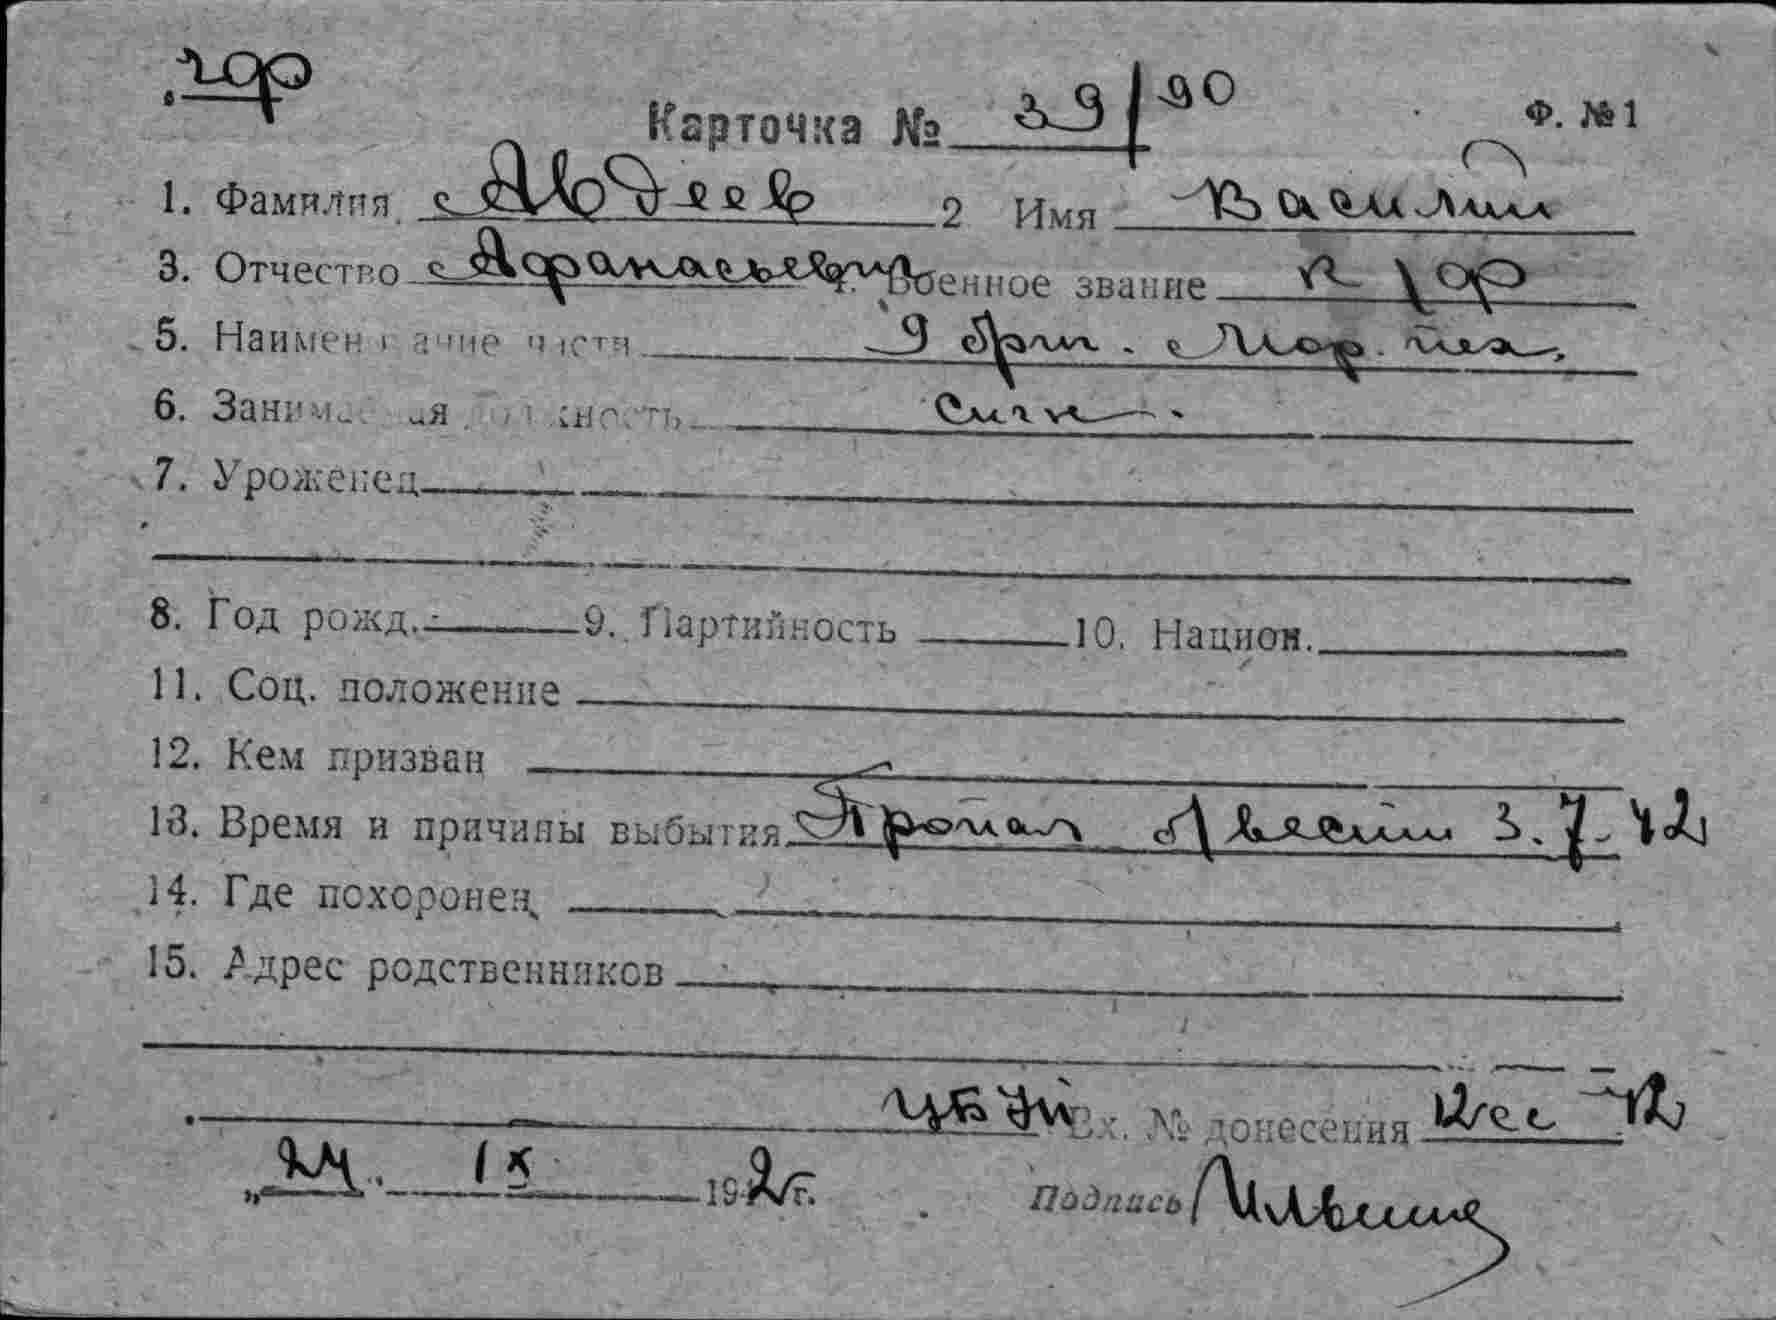 Карточка № 39/90 Ф. №1
1. Фамилия Авдеев 2 Имя Василий
3. Отчество Афанасьевич 4. Военное звание к
5. Наименование части 9 бриг. Мор. пех.
6. Занимаемая должность Сигн.
7. Уроженец
8. Год рожд. 9. Партийность 10. Национ.
11. Соц. положение
12. Кем призван
13. Время и причины выбытия Пропал Без вести 3.7.42
14. Где похоронен
15. Адрес родственников
Вх. № донесения
„24. IX 1942г. Подпись